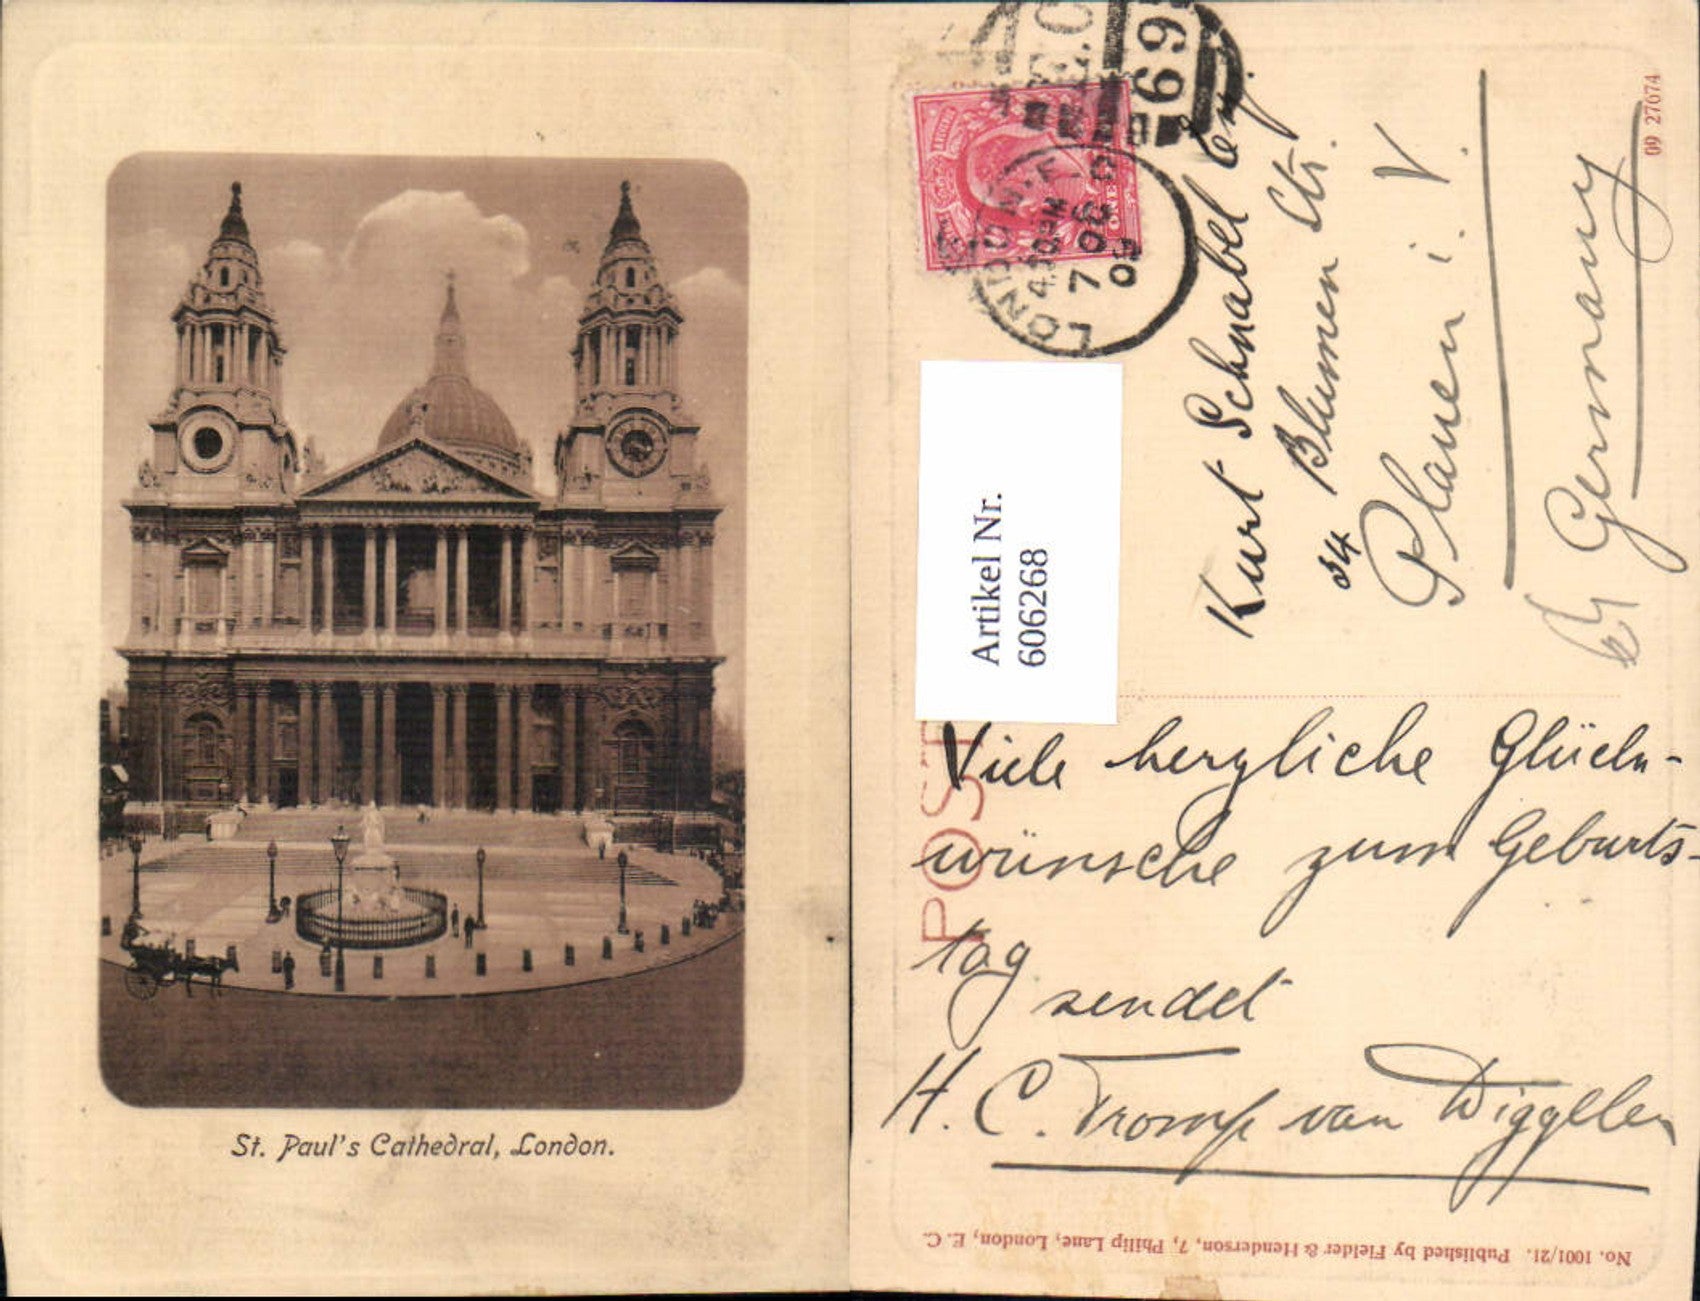 St. Paul's Cathedral, London.
69
ONE
LONDON. F.
4.30PM
7 OC
09
Artikel Nr.
606268
Kurt Schnabel
34 Blumen Str.
Plauen i. V.
Germany
09 27674
POST
Viele herzliche Glück-
wünsche zum Geburts-
tag
sendet
H. C. Tromp van Diggelen
No. 1001/21. Published by Fielder & Henderson, 7, Philip Lane, London, E. C.